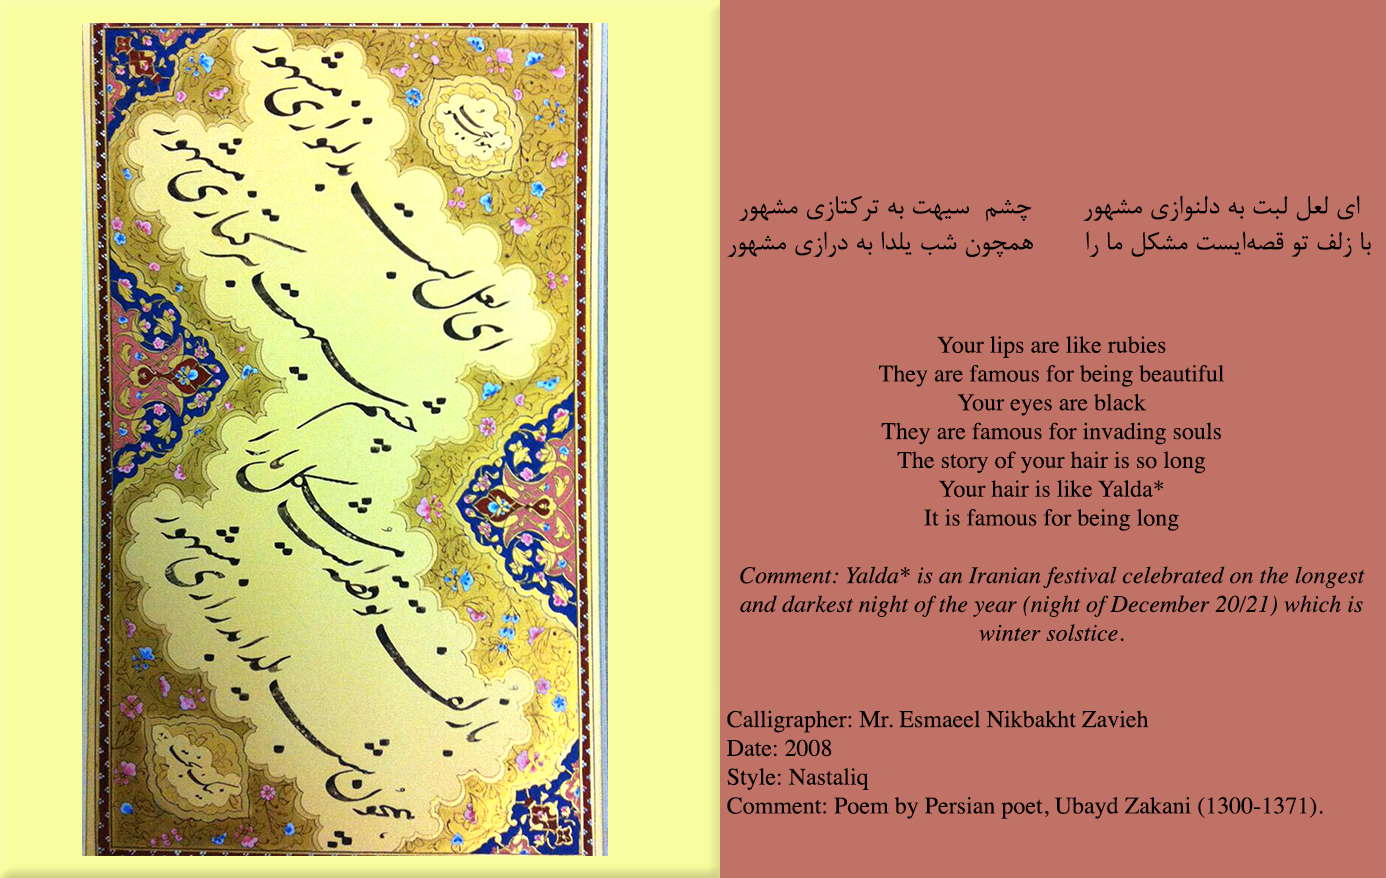 ای لعل لبت
به دلنوازی مشهور
چشم سیهت
به ترکتازی مشهور
با زلف تو قصه ایست مشکل ما را
همچون شب یلدا به درازی مشهور
نیکبخت
ای لعل لبت به دلنوازی مشهور چشم سیهت به ترکتازی مشهور
با زلف تو قصه‌ایست مشکل ما را همچون شب یلدا به درازی مشهور
Your lips are like rubies
They are famous for being beautiful
Your eyes are black
They are famous for invading souls
The story of your hair is so long
Your hair is like Yalda*
It is famous for being long
Comment: Yalda* is an Iranian festival celebrated on the longest
and darkest night of the year (night of December 20/21) which is
winter solstice.
Calligrapher: Mr. Esmaeel Nikbakht Zavieh
Date: 2008
Style: Nastaliq
Comment: Poem by Persian poet, Ubayd Zakani (1300-1371).